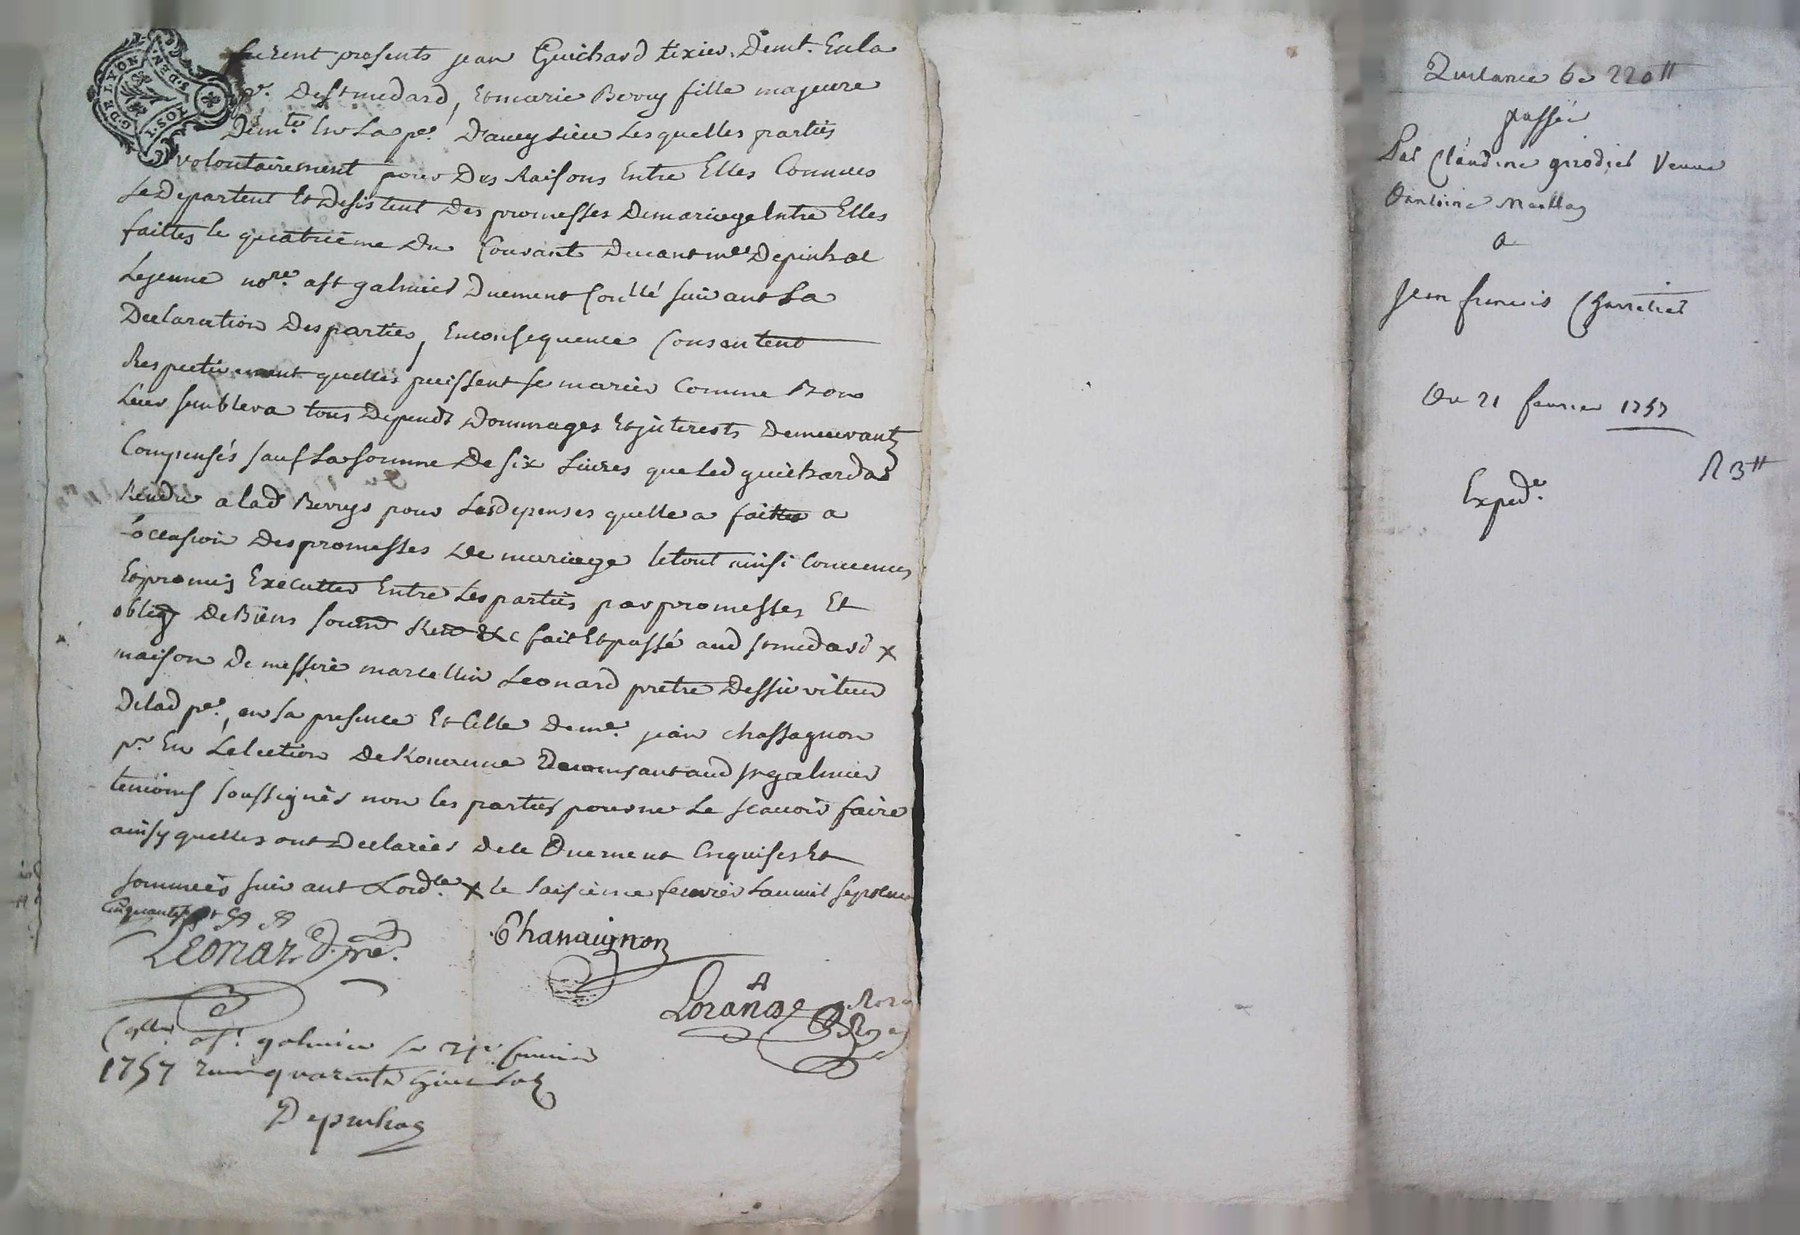 G. DE LYON
furent presents jean Guichard tixier Demt. En la
pe. De st medard, Et marie Berry fille majeure
Demte. En La pe. D'aveysieu Lesquelles parties
volontairement pour Des Raisons Entre Elles Connues
Se Departent Et Desistent Des promesses De mariage Entre Elles
faittes le quatrieme Du Courant Devant me. Depinhac
Lejeune nore. a st galmier Duement Conllé suivant La
Declaration Des parties, En consequence Consentent
Respectivement quelles puissent se marier Comme Bon
Leur semblera tous Depends Dommages Et jnterests Demeurants
Compensés sauf La somme De six Livres que led guichard a
Rendu a lad Berry pour Les depenses quelle a faittes a
L'occasion Des promesses De mariage le tout ainsi Convenus
Et promis Executter Entre Les parties par promesses Et
oblig De Biens soum Ren &c fait Et passé aud st medard x
maison De messire marcellin Leonard pretre Desserviteur
De lad pe., en sa presence Et Celle De me. jean chassagnon
pr. En Lelection De Roanne Demeurant aud st galmier
temoins soussignés non les parties pour ne Le scavoir faire
ainsy quelles ont Declarées De ce Duement Enquises Et
sommées suivant Lordce x le saisieme fevrier La mil sept cens
Cinquante sept
Leonard. pre.
Chassaignon
Lorange Nore
Roy
Conllé. a st. galmier le 21e fevrier
1757 Recu quarente Cinq sols
Depinhac
Quitance de 220 ₶
passée
Par Claudine girodiet Veuve
D'antoine
a
Jean francois Charretier
Du 21 fevrier 1757
R 3 ₶
Expede.